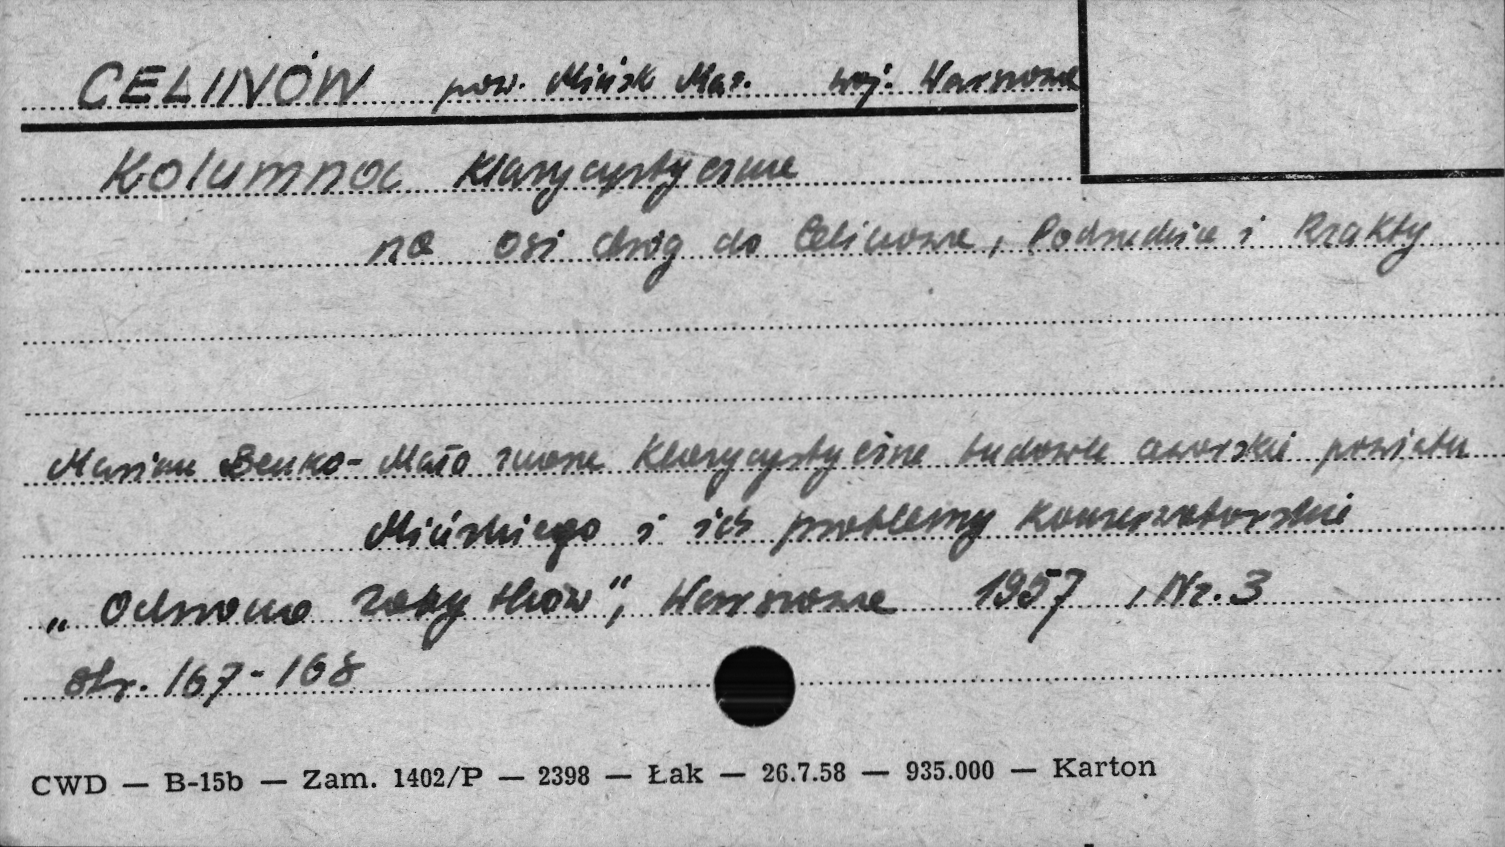 CELINÓW pow. Mińsk Maz. woj. Warszawa
Kolumna klasycystyczna
na osi dróg do Celinowa, Podrudzia i Rzakty
Marian Benko - Mało znane klasycystyczne budowle dworskie powiatu
Mińskiego i ich problemy konserwatorskie
„Ochrona Zabytków”, Warszawa 1957, Nr. 3
str. 167-168
CWD — B-15b — Zam. 1402/P — 2398 — Łak — 26.7.58 — 935.000 — Karton